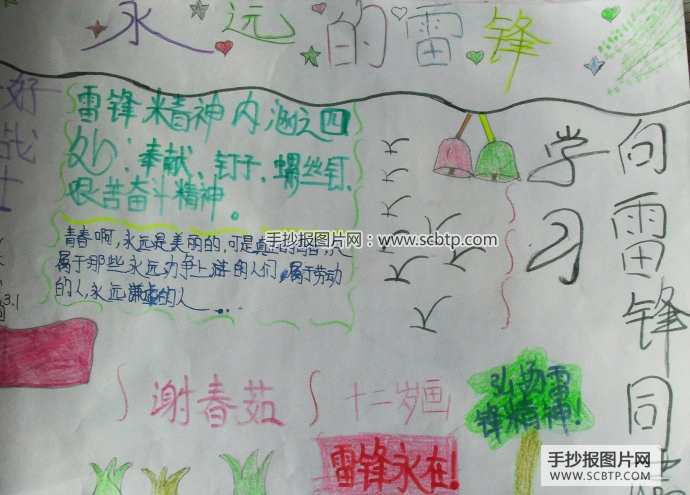 永远的雷锋
好战士
雷锋精神内涵之四
处：奉献、钉子、螺丝钉、
艰苦奋斗精神。
青春啊，永远是美丽的，可是真正的青春，只
属于那些永远力争上游的人们，属于劳动
的人，永远谦虚的人……
3.1
向雷锋同
学习
谢春茹
十二岁画
雷锋永在！
弘扬雷
锋精神！
手抄报图片网：www.scbtp.com
手抄报图片网
WWW.SCBTP.COM